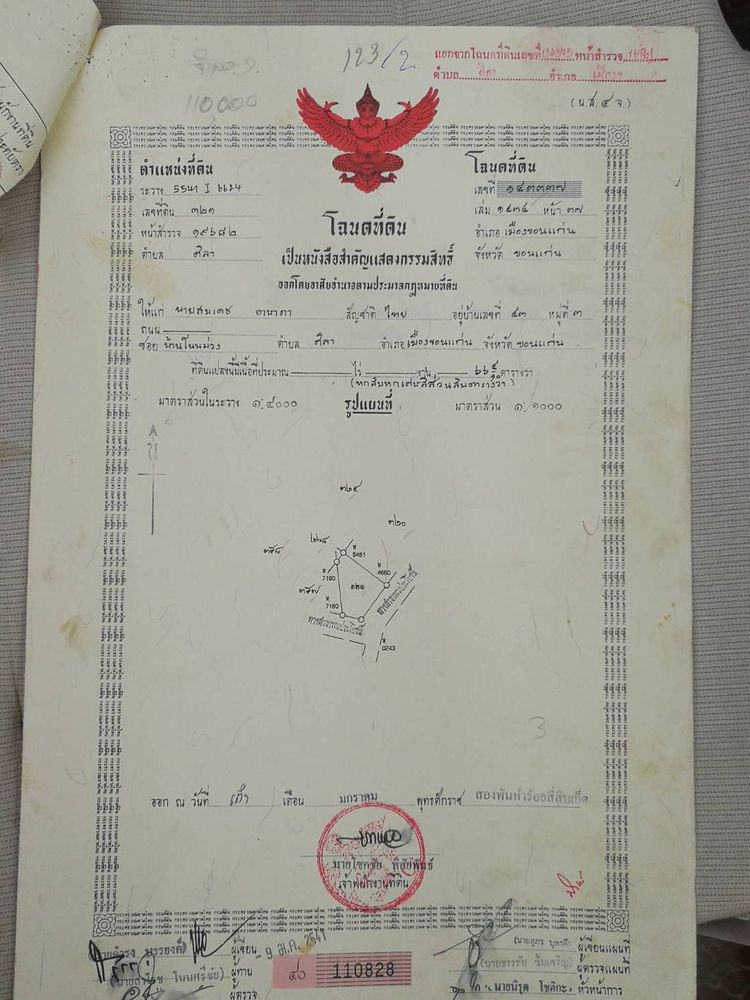 123/2
แยกจากโฉนดที่ดินเลขที่ หน้าสำรวจ
ตำบล ศิลา อำเภอ เมืองฯ
110,000
(น.ส.๔ จ.)
ตำแหน่งที่ดิน
ระวาง 5541 I 6624
เลขที่ดิน ๓๒๑
หน้าสำรวจ ๑๙๖๘๒
ตำบล ศิลา
โฉนดที่ดิน
เลขที่ ๑๔๓๓๓๗
เล่ม ๑๔๓๔ หน้า ๓๗
อำเภอ เมืองขอนแก่น
จังหวัด ขอนแก่น
โฉนดที่ดิน
เป็นหนังสือสำคัญแสดงกรรมสิทธิ์
ออกโดยอาศัยอำนาจตามประมวลกฎหมายที่ดิน
ให้แก่ นายสมเดช สัญชาติ ไทย อยู่บ้านเลขที่ ๔๓ หมู่ที่ ๓
ถนน
ซอย บ้านโนนม่วง ตำบล ศิลา อำเภอ เมืองขอนแก่น จังหวัด ขอนแก่น
ที่ดินแปลงนี้มีเนื้อที่ประมาณ ไร่ งาน ๖๖ ตารางวา
(หกสิบหกเศษสี่ส่วนสิบตารางวา)
มาตราส่วนในระวาง ๑:๔๐๐๐ รูปแผนที่ มาตราส่วน ๑:๑๐๐๐
๓๒๐
5481
ห 7190
4660
๓๒๑
ห 7180
ทางสาธารณประโยชน์
ทางสาธารณประโยชน์
ห 0243
3
ออก ณ วันที่ เก้า เดือน มกราคม พุทธศักราช สองพันห้าร้อยสี่สิบเอ็ด
นายโชคชัย พิสัยพันธ์
เจ้าพนักงานที่ดิน
ผู้เขียน
- 9 ม.ค. 2541
ผู้เขียนแผนที่
ผู้ทาน
๔๖ 110828
ผู้ตรวจแผนที่
ผู้ตรวจ
หัวหน้าการ